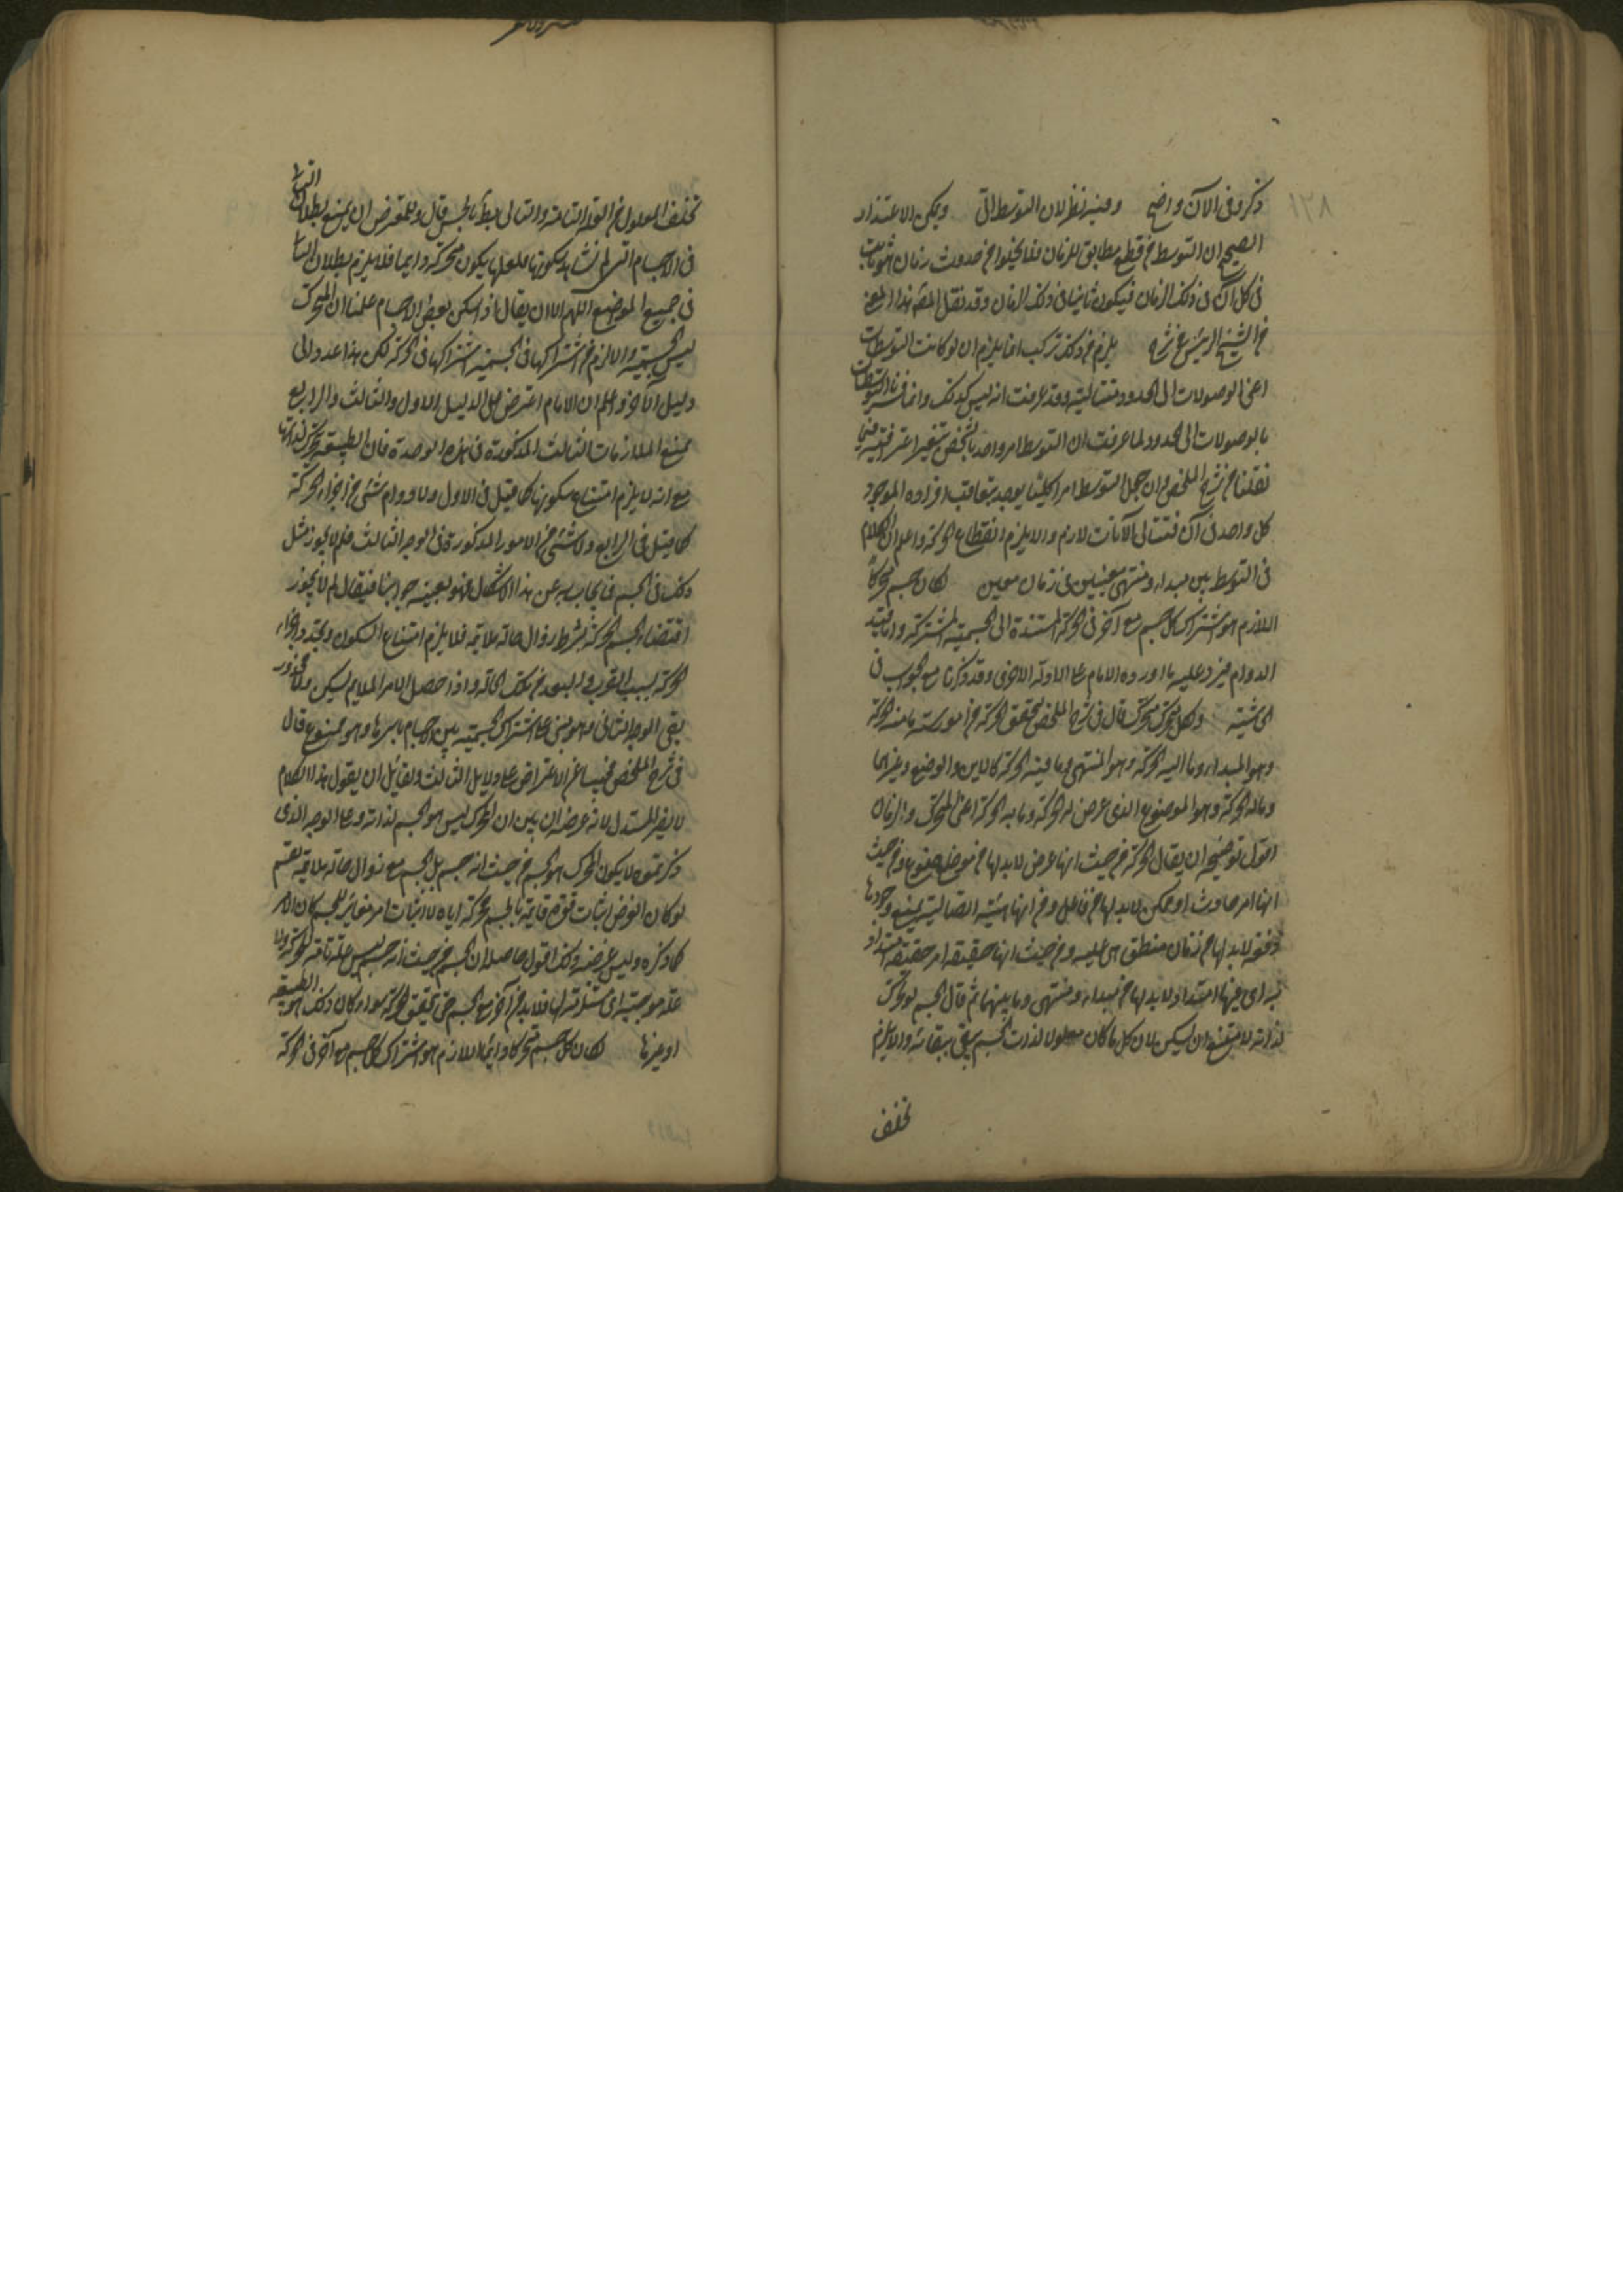 ذكر وفى الآن واضح وفيه نظر لان التوسط الى ويمكن الاعتذار
الصحيح ان التوسط مطابق للزمان فلا يخلوا حدوث زمان
فى كل آن فى ذلك الزمان فيكون ثابتا فى ذلك الزمان وقد نقل المصه هذا المعنى
من الشيخ الرئيس يلزم من ذلك تركب انما يلزم ان لو كانت التوسطات
اعنى الوصولات الى الحدود متتالية وقد عرفت انه ليس كذلك وانما فسرنا التوسطات
بالوصولات الى الحدود لما عرفت ان التوسط امر واحد بالشخص
نقلنا من شرح الملخص وان جعل التوسط امرا كليا يوجد بتعاقب افراده الموجود
كل واحد فى آن فتتالى الآنات لازم والا يلزم انقطاع الحركة واعلم ان الكلام
فى التوسط بين مبداء ومنتهى معينين فى زمان معين لكان جسم متحركا
اللازم هو اشتراك كل جسم مع آخر فى الحركة المستندة الى الجسمية المشتركة واما
الدوام فيرد عليه ما اورده الامام على الادلة الاخرى وقد ذكرنا مع الجواب فى
الحاشية وكل متحرك قال فى شرح الملخص تحقق الحركة من امور ستة ما منه الحركة
وهو المبداء وما اليه الحركة وهو المنتهى وما فيه الحركة كالاين والوضع وغيرهما
وما له الحركة وهو الموضوع الذى عرض له الحركة وما به الحركة اعنى المحرك والزمان
اقول توضيحه ان يقال الحركة من حيث انها عرض لابد لها من موضوع ومن حيث
انها امر حادث او ممكن لابد لها من فاعل ومن انها هيئة اتصالية يمتنع وجودها
دفعة لابد لها من زمان منطبق هى عليه ومن حيث انها حقيقة امر
اى فيها امتداد لابد لها من مبداء ومنتهى وما بينهما ثم قال الجسم لو تحرك
لذاته لامتنع ان يسكن لان كل ما كان معلولا لذات الجسم يبقى ببقائه والا يلزم
تخلف
تخلف المعلول عن العلة التامة والتالى بط بالحس قال وللمعترض ان يمنع بطلان التالى
فى الاجسام التى لم نشاهد سكونها فلعلها يكون متحركة دايما فلا يلزم بطلان التالى
فى جميع المواضع اللهم الا ان يقال اذا سكن بعض الاجسام علمنا ان المحرك
ليس الجسمية والا لزم من اشتراكها فى الجسمية اشتراكها فى الحركة لكن هذا عدول الى
دليل آخر واعلم ان الامام اعترض على الدليل الاول والثالث والرابع
بمنع الملازمات الثالث المذكورة فى هذه الوحدة فان الطبيعة تحرك لذاتها
مع انه لا يلزم امتناع سكونها كما قيل فى الاول ولا دوام شئ من اجزاء الحركة
كما قيل فى الرابع ولا شئ من الامور المذكورة فى الوجه الثالث فلم لا يجوز مثل
ذلك فى الجسم فما يجاب به عن هذا الاشكال فهو بعينه جوابنا فيقال لم لا يجوز
اقتضاء الجسم الحركة بشرط زوال حالة ملايمة فلا يلزم امتناع السكون وتجدد اجزاء
الحركة بسبب القرب والبعد من تلك الحالة واذا حصل الامر الملايم يسكن ولا محذور
بقى الوجه الثانى وهو مبنى على اشتراك الجسمية بين الاجسام باسرها وهو ممنوع قال
فى شرح الملخص مجيبا عن الاعتراض على دلايل الثالث ولقائل ان يقول هذا الكلام
لا يضر المستدل لان غرضه ان يبين ان المحرك ليس هو الجسم لذاته وعلى الوجه الذى
ذكرتموه لا يكون المحرك هو الجسم من حيث انه جسم بل الجسم مع زوال حالة ملايمة نعم
لو كان الغرض اثبات قوة قايمة بالجسم محركة اياه لا اثبات امر مغاير للجسم كان الامر
كما ذكره وليس غرضه ذلك اقول حاصله ان الجسم من حيث انه جسم ليس علة تامة للحركة ولا
علة موجبة اى مستلزمة لها فلابد من آخر مع الجسم حتى تحقق الحركة سواء كان ذلك هو الطبيعة
او غيرها لكان كل جسم متحركا دايما اللازم هو اشتراك كل جسم مع آخر فى الحركة